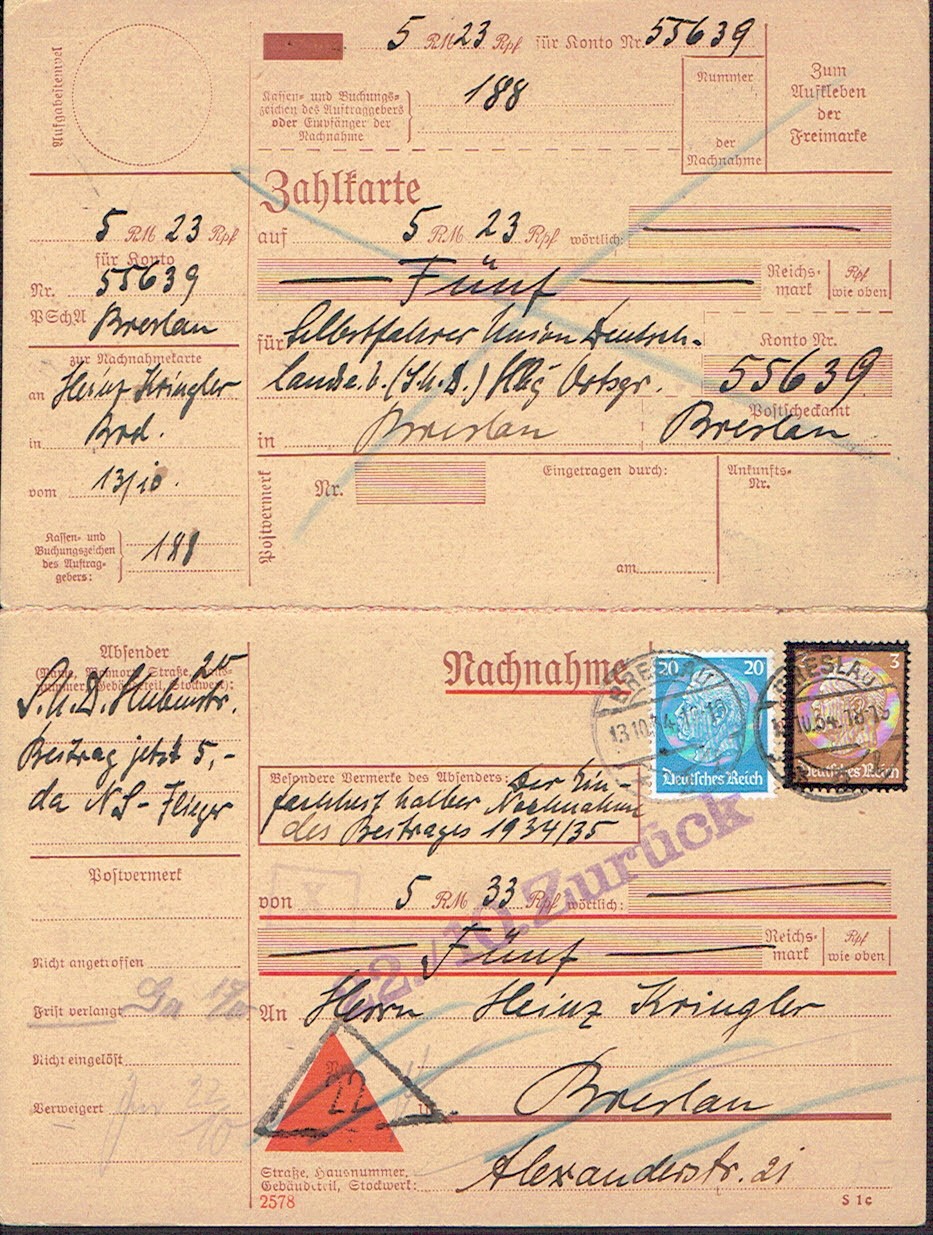 Aufgabestempel
5 RM 23 Rpf für Konto Nr. 55639
Kassen- und Buchungs-
zeichen des Auftraggebers
oder Empfänger der
Nachnahme
188
Nummer
der
Nachnahme
Zum
Aufkleben
der
Freimarke
Zahlkarte
auf 5 RM 23 Rpf wörtlich:
Fünf
Reichs-
mark
Rpf
wie oben
für Selbstfahrer Union Deutsch-
Ortsgr.
in Breslau
Konto Nr.
55639
Postscheckamt
Breslau
Postvermerk
Nr.
Eingetragen durch:
am
Ankunfts-
Nr.
5 RM 23 Rpf
für Konto
Nr. 55639
PSchA Breslau
zur Nachnahmekarte
an Heinz Kringler
in
vom 13/10.
Kassen- und
Buchungszeichen
des Auftrag-
gebers:
188
Absender
S.U.D.
Beitrag jetzt 5,-
da NS-Flieger
Postvermerk
Nicht angetroffen
Frist verlangt
Nicht eingelöst
Verweigert 22/10
Nachnahme
20 20
Deutsches Reich
BRESLAU
13.10.34.18-19
3
Deutsches Reich
BRESLAU
10.34.18-19
Besondere Vermerke des Absenders: Der Ein-
fachheit halber Nachnahme
des Beitrages 1934/35
22./10. Zurück
von 5 RM 33 Rpf wörtlich:
Fünf
Reichs-
mark
Rpf
wie oben
An Herrn Heinz Kringler
22
in Breslau
Straße, Hausnummer,
Gebäudeteil, Stockwerk:
Alexanderstr. 21
2578
S 1c